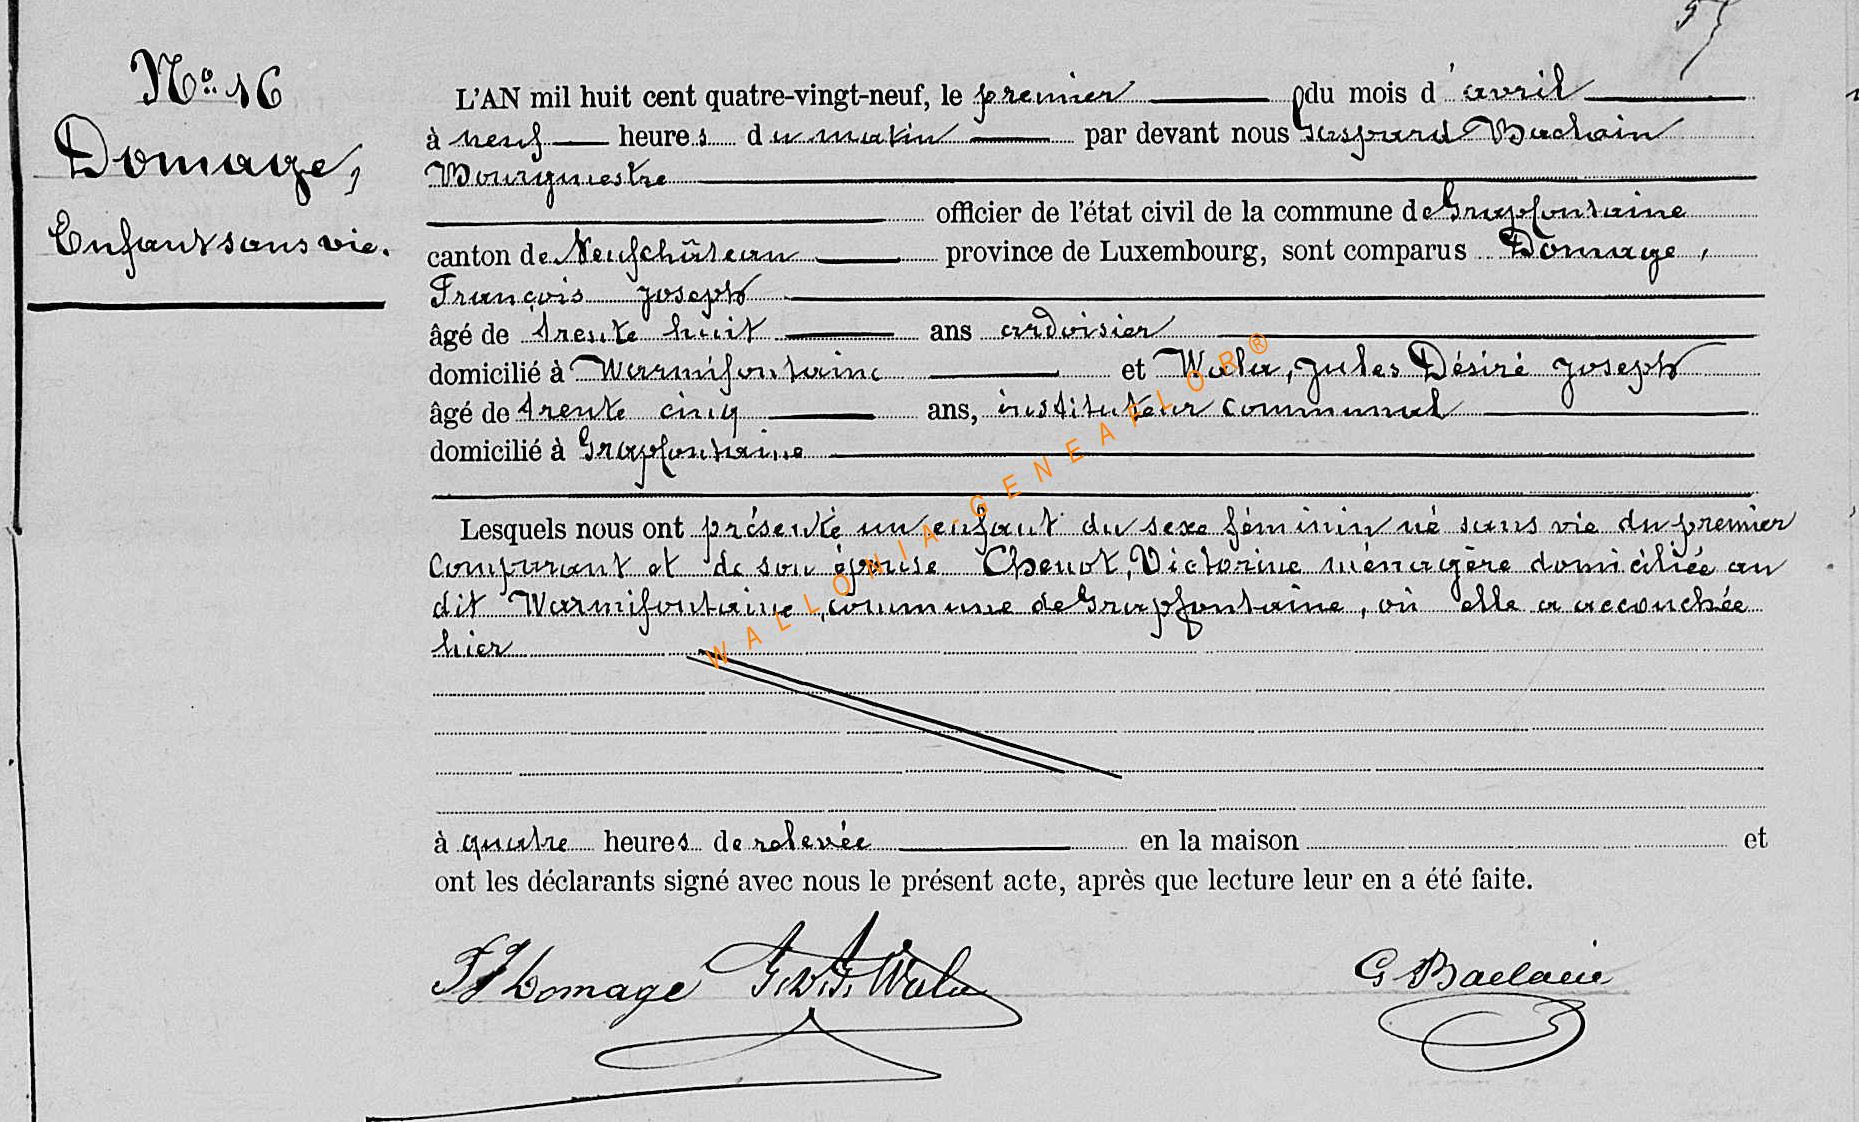 57
N° 16
Domage,
Enfant sans vie.
L'AN mil huit cent quatre-vingt-neuf, le premier du mois d'avril
à neuf heures du matin par devant nous Gaspard Baclain
Bourgmestre
officier de l'état civil de la commune de Grapfontaine
canton de Neufchâteau province de Luxembourg, sont comparus Domage,
François Joseph
âgé de trente huit ans ardoisier
domicilié à Warmifontaine et Wala, Jules Désiré Joseph
âgé de trente cinq ans, instituteur communal
domicilié à Grapfontaine
Lesquels nous ont présenté un enfant du sexe féminin né sans vie du premier
Comparant et de son épouse Chenot, Victorine ménagère domiciliée au
dit Warmifontaine, commune de Grapfontaine, où elle a accouchée
hier
à quatre heures de relevée en la maison et
ont les déclarants signé avec nous le présent acte, après que lecture leur en a été faite.
FJ Domage J.D.J. Wala G Baclain
WALLONIA-GENEAFLOR®